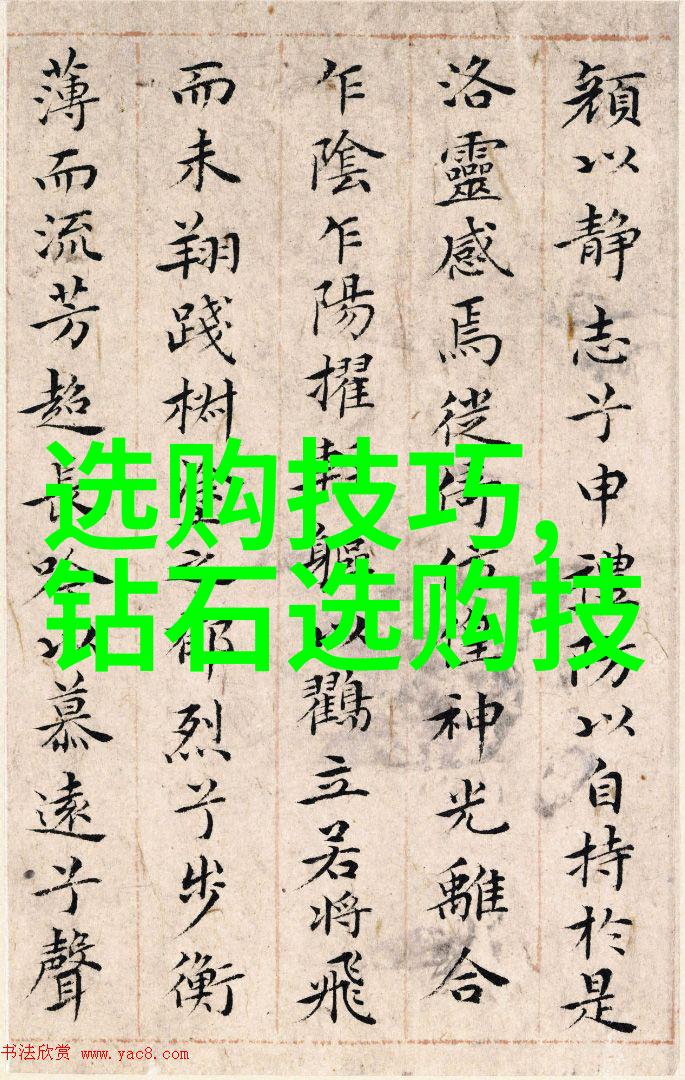 顏以静志兮申禮防以自持於是
洛靈感焉徙倚仿徨神光離合
乍陰乍陽擢軀以立若将飛
而未翔踐椒之郁烈兮步衡
薄而流芳超長吟以慕遠兮聲
选购技巧,
钻石选购技
书法欣赏 www.yac8.com